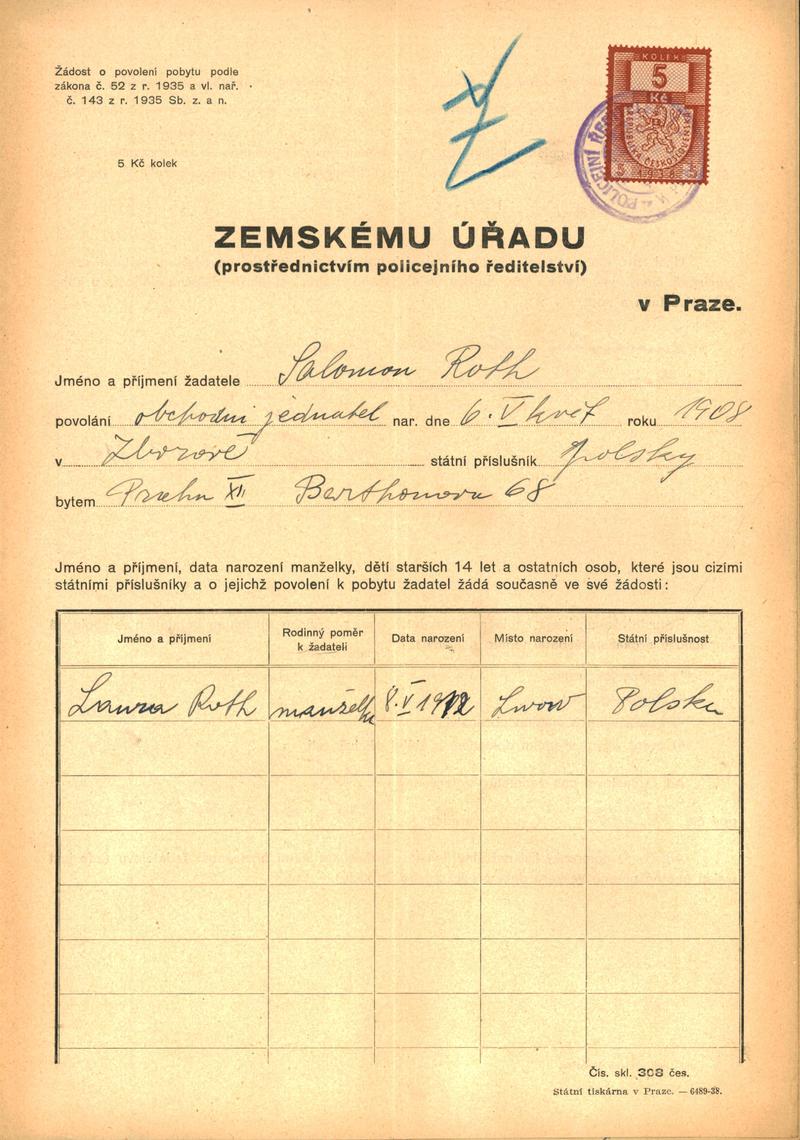 Žádost o povolení pobytu podle
zákona č. 52 z r. 1935 a vl. nař.
č. 143 z r. 1935 Sb. z. a n.
5 Kč kolek
KOLEK
5
Kč
REPUBLIKA ČESKOSLOVENSKÁ
5 1938 5
POLICEJNÍ ŘE
ZEMSKÉMU ÚŘADU
(prostřednictvím policejního ředitelství)
v Praze.
Jméno a příjmení žadatele Salomon Roth
povolání obchodní jednatel nar. dne 6. V květ roku 1908
v Zborově státní příslušník polský
bytem Praha XII Berthonova 68
Jméno a příjmení, data narození manželky, dětí starších 14 let a ostatních osob, které jsou cizími
státními příslušníky a o jejichž povolení k pobytu žadatel žádá současně ve své žádosti:
Jméno a příjmení Rodinný poměr k žadateli Data narození Místo narození Státní příslušnost
Laura Roth manželka 8. V 1912 Lwow Polska
Čís. skl. 308 čes.
Státní tiskárna v Praze. — 6489-38.